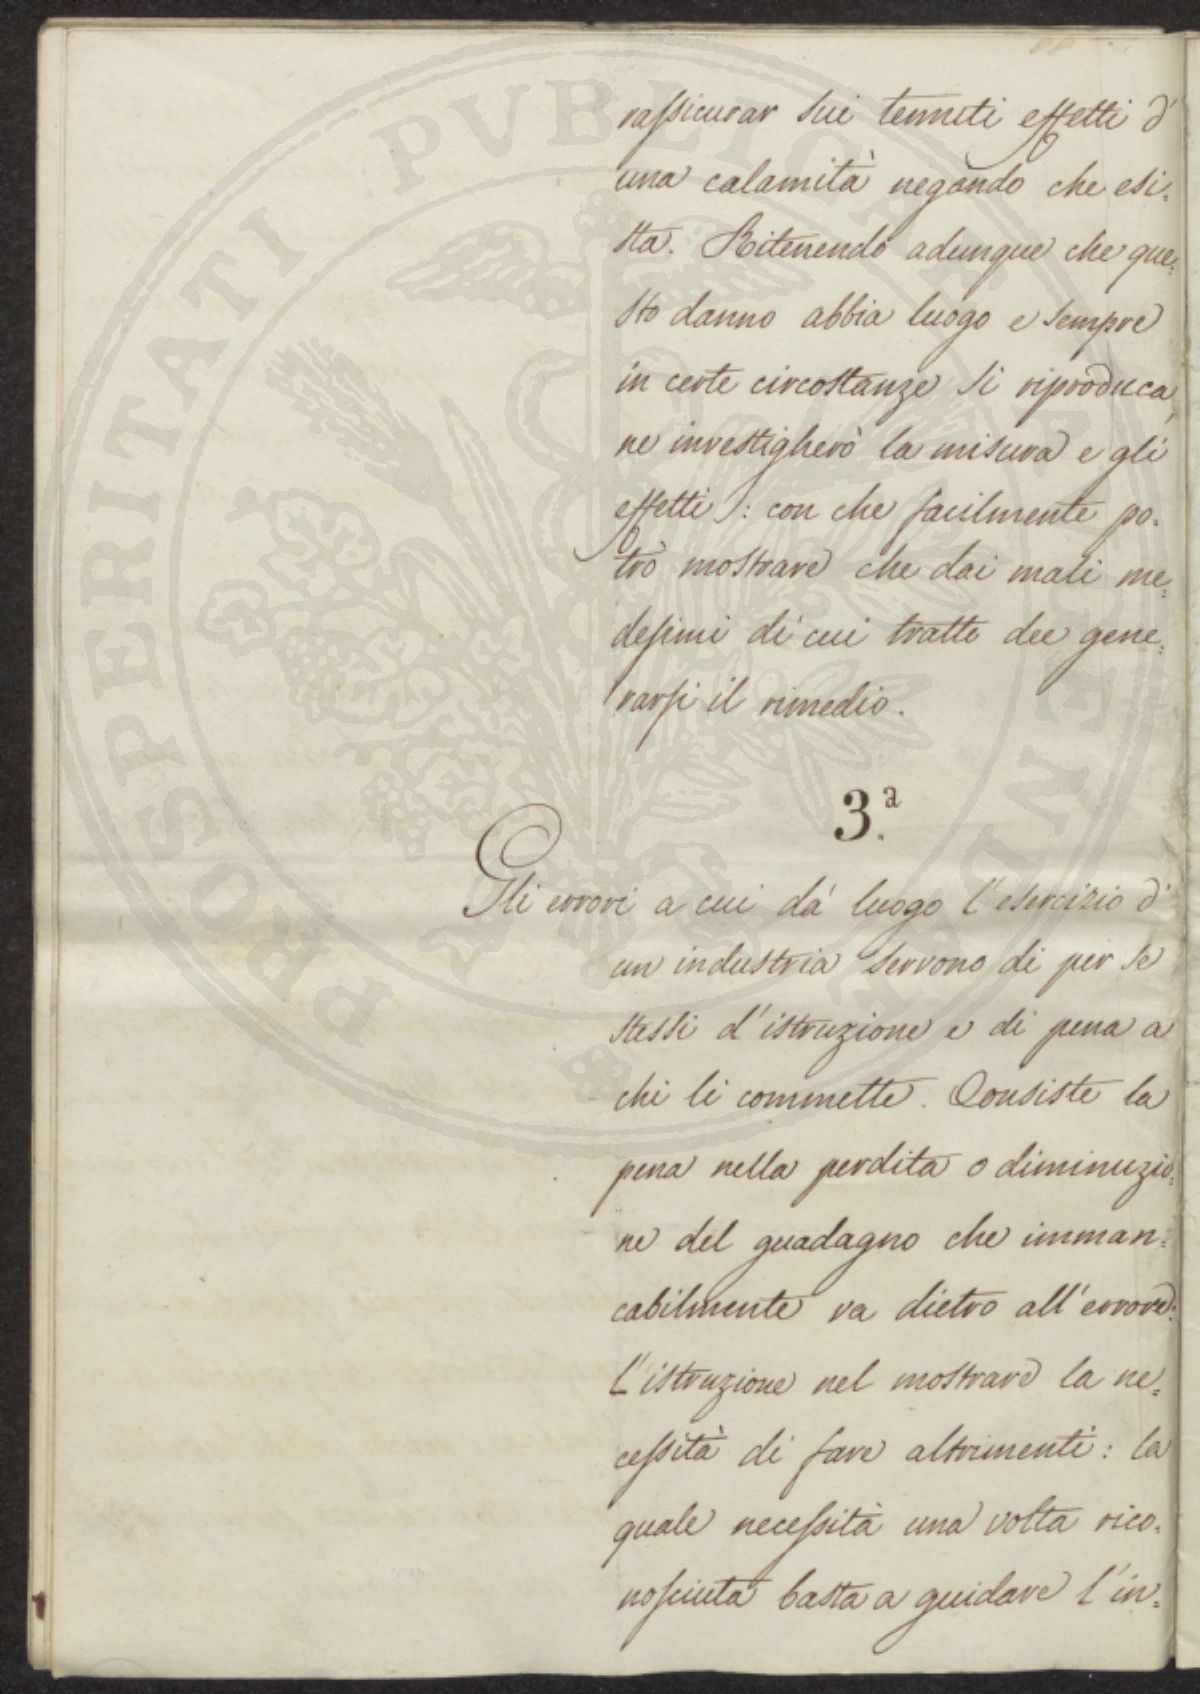 rassicurar sui temuti effetti d'
una calamità negando che esi:
sta. Ritenendo adunque che que:
sto danno abbia luogo e sempre
in certe circostanze si riproduca,
ne investigherò la misura e gli
effetti: con che facilmente po:
trò mostrare che dai mali me:
desimi di cui tratto dee gene:
rarsi il rimedio.
3.ª
Gli errori a cui dà luogo l'esercizio d'
un industria servono di per se
stessi d'istruzione e di pena a
chi li commette. Consiste la
pena nella perdita o diminuzio:
ne del guadagno che imman:
cabilmente va dietro all'errore:
l'istruzione nel mostrare la ne:
cessità di fare altrimenti: la
quale necessità una volta rico:
nosciuta basta a guidare l'in:
PROSPERITATI PVBLICAE AVGENDAE